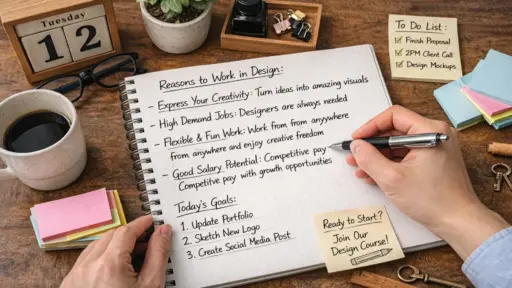 Tuesday
12
Reasons to Work in Design:
- Express Your Creativity: Turn ideas into amazing visuals
- High Demand Jobs: Designers are always needed
- Flexible & Fun Work: Work from from anywhere
from anywhere and enjoy creative freedom
- Good Salary Potential: Competitive pay
Competitive pay with growth opportunities
Today's Goals:
1. Update Portfolio
2. Sketch New Logo
3. Create Social Media Post
To Do List:
✓ Finish Proposal
✓ 2PM Client Call
✓ Design Mockups
Ready to Start?
Join Our
Design Course!